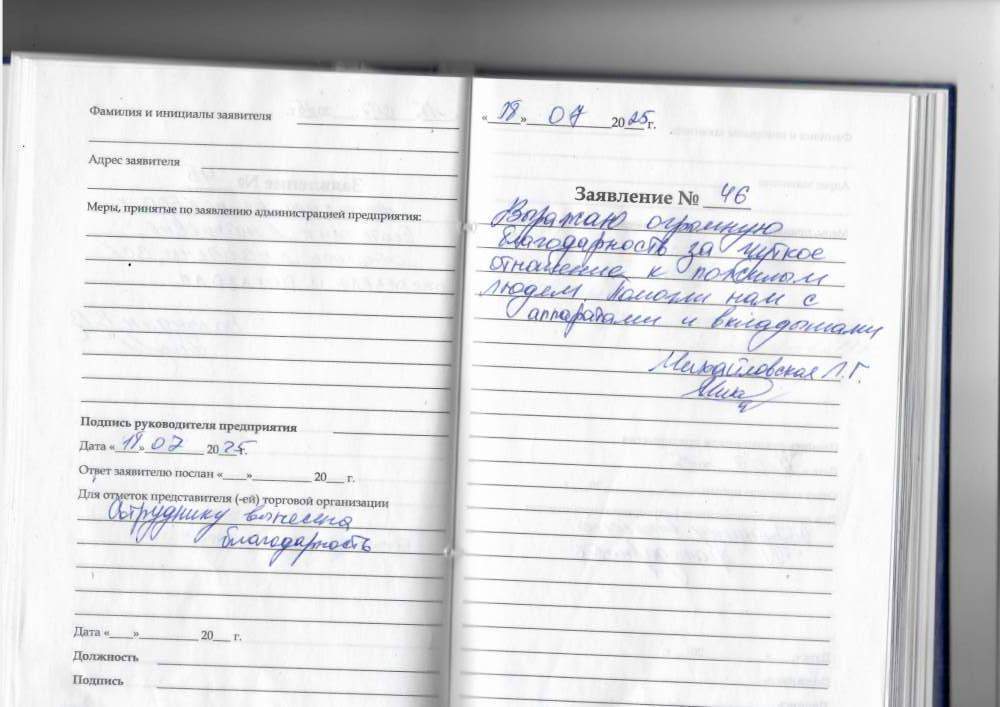 Фамилия и инициалы заявителя
Адрес заявителя
Меры, принятые по заявлению администрацией предприятия:
Подпись руководителя предприятия
Дата «18» 07 2025г.
Ответ заявителю послан «____»__________ 20___ г.
Для отметок представителя (-ей) торговой организации
Сотруднику вынесена
благодарность
Дата «____»__________ 20___ г.
Должность
Подпись
«18» 07 2025г.
Заявление № 46
Выражаю огромную
благодарность за чуткое
отношение к пожилым
людем, Помогли нам с
аппаратами и вкладышами
Михайловская Л.Г.